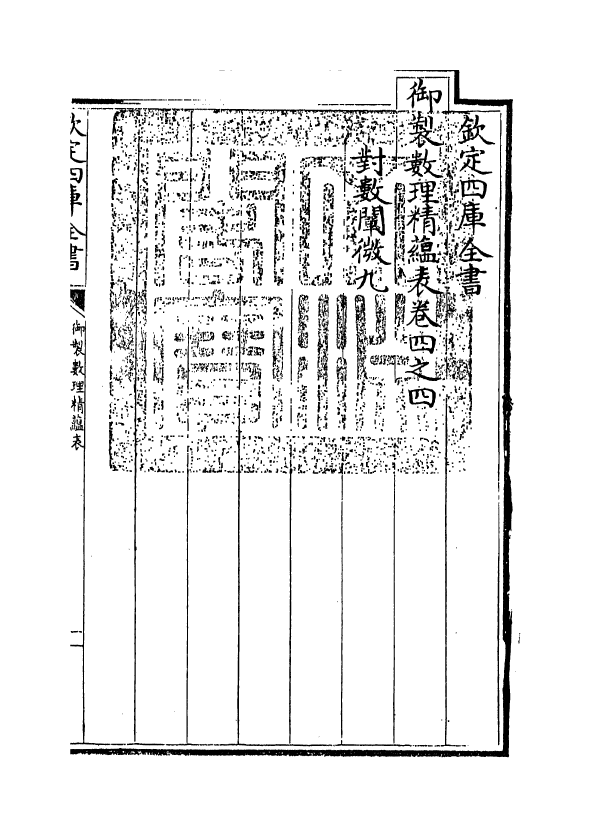 欽定四庫全書
御製數理精蘊表卷四之四
對數闡微九
欽定四庫全書
御製數理精蘊表
一